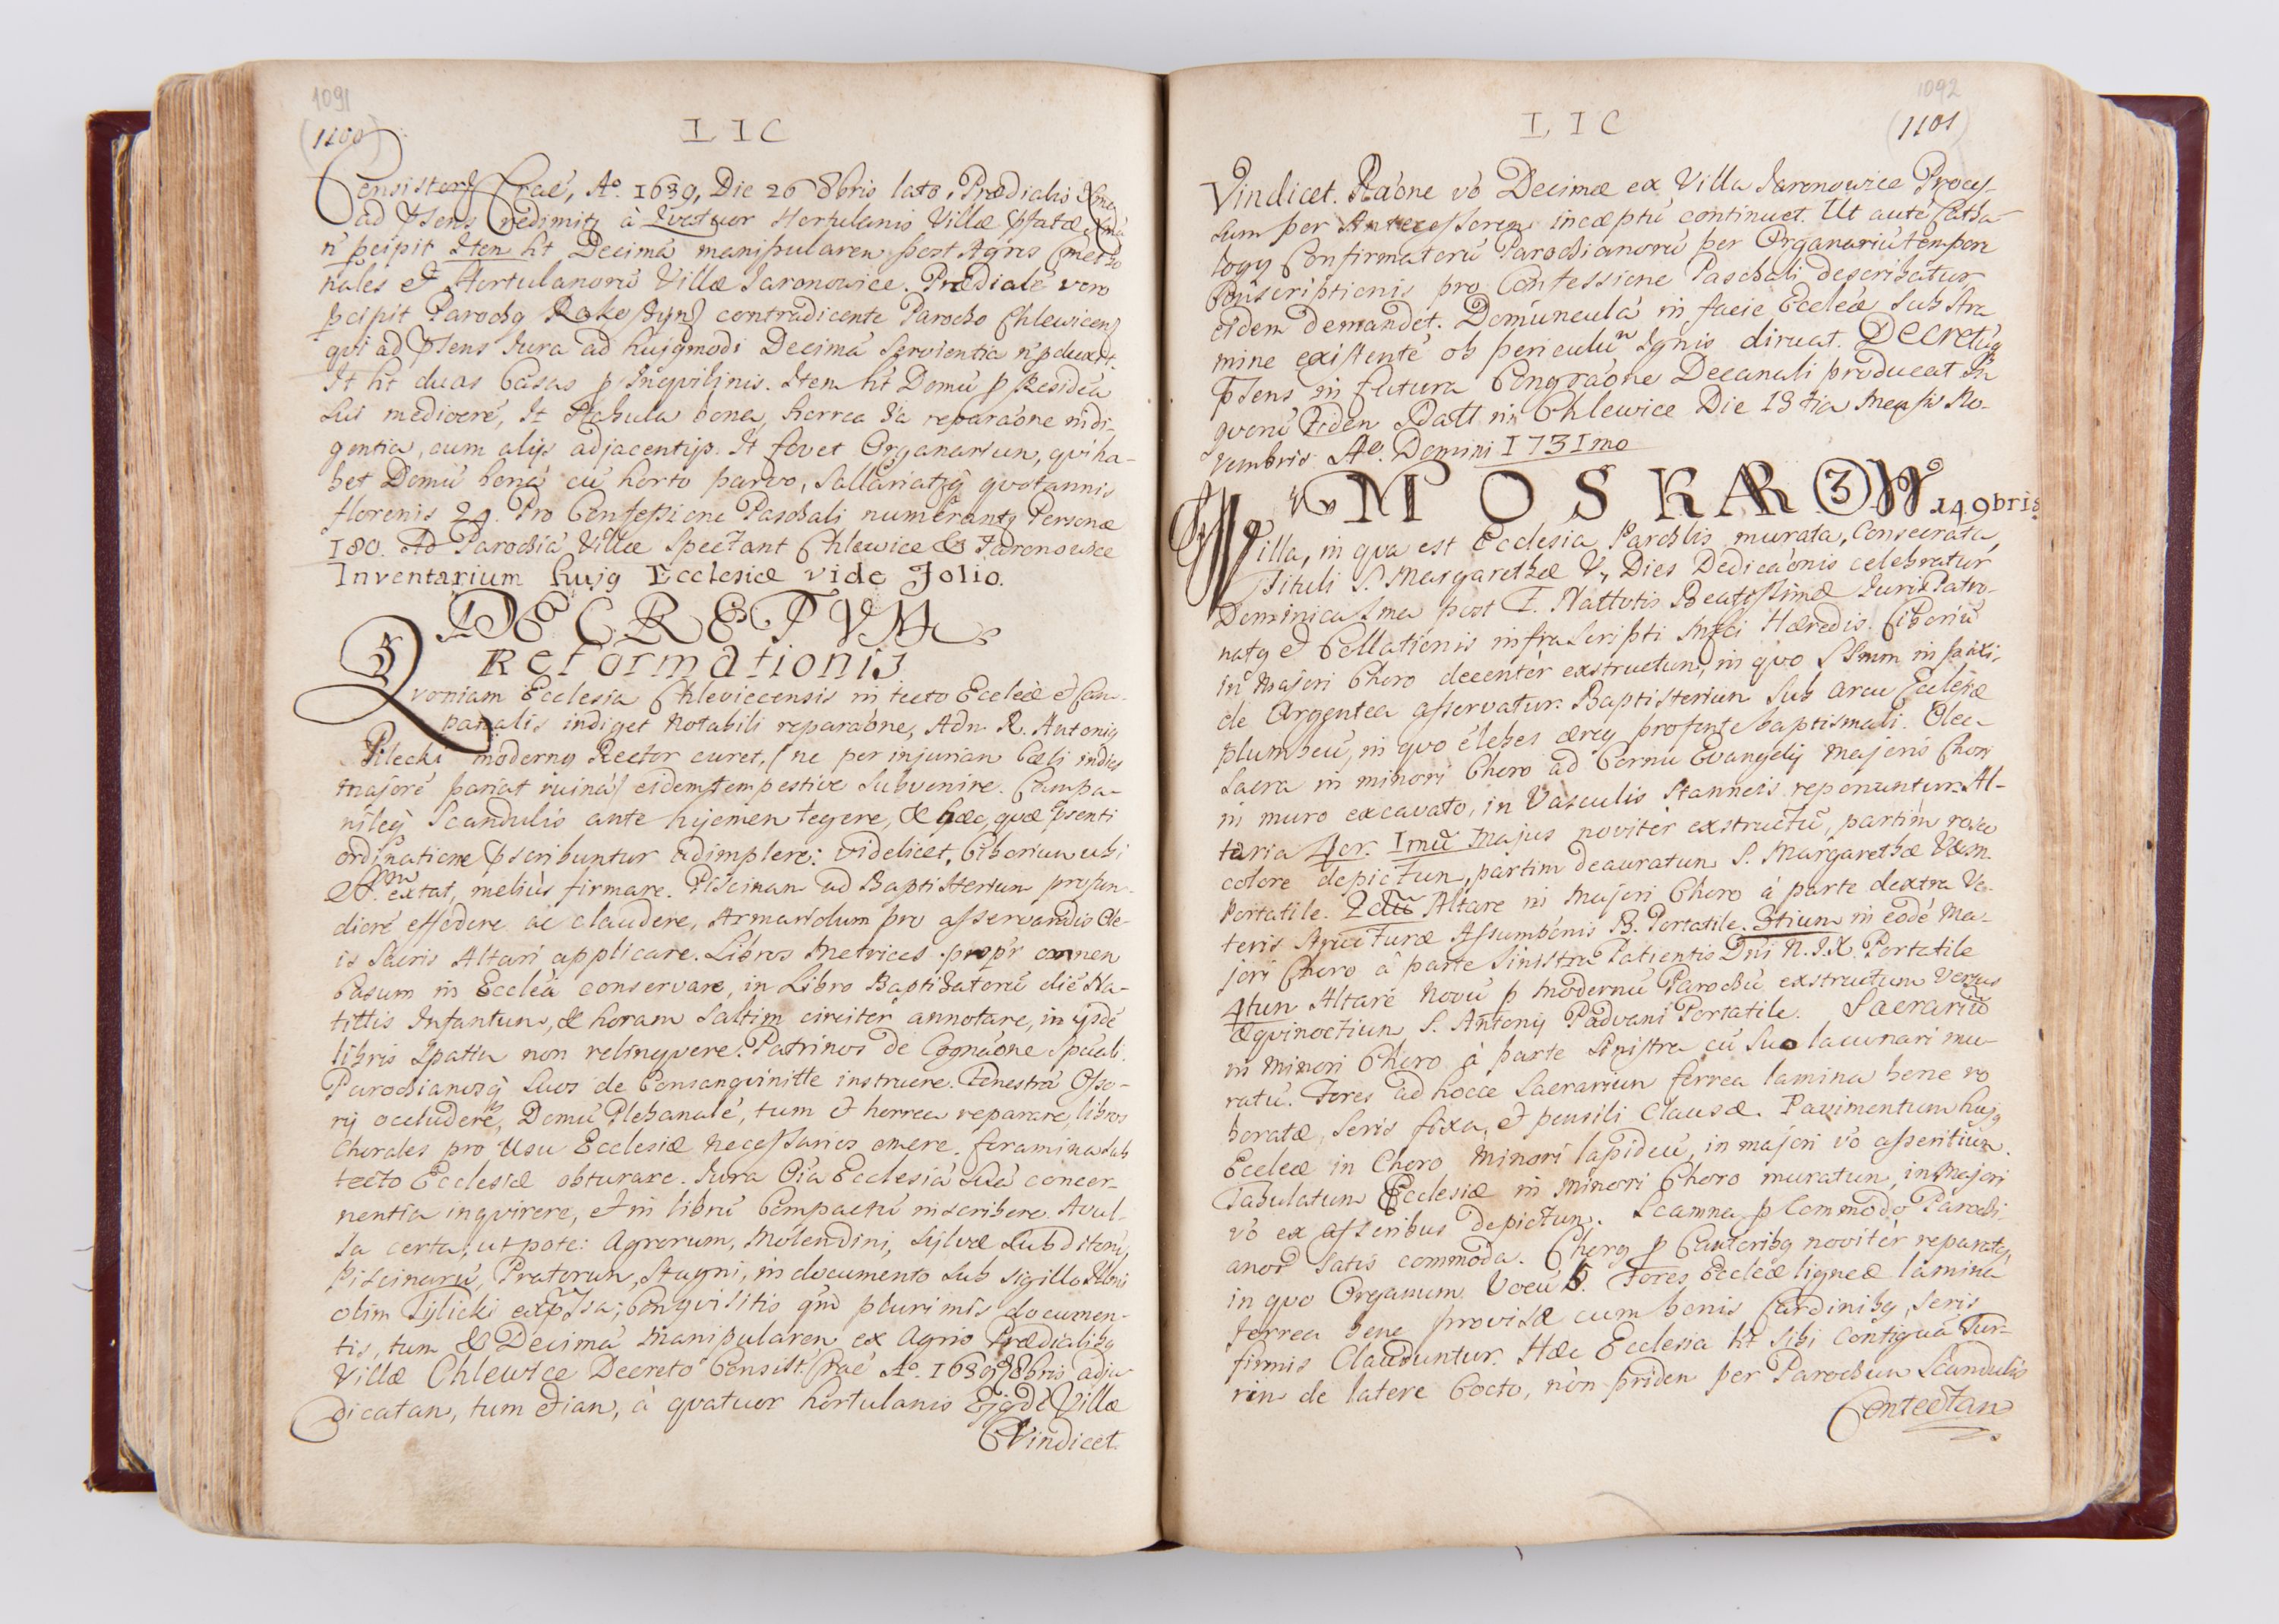 1091
(1100)
LIC
Consistorii Crac, Aº. 1639, Die 26 8bris lato. Prædialis
ad Psens redimitꝫ à Qvatuor Hortulanis Villæ Pfatæ
ń pcipit Iten ht Decimá manipularem post Agros Cmetho
nales & Hortulanorú Villæ Jaronowice. Prædialé vero
pcipit Parochꝫ Rakoszyn contradicente Parocho Chlewicen
qvi ad Psens Iura ad hujꝫmodi Decimá servientia ń pduxit.
It ht duas Casas p Inqvilinis. Iten ht Domú p Residéa
sui mediocré, It Stabula bona, horrea ia reparaóne indi-
gentia, cum alijs adjacentijs. It fovet Organarium, qvi ha-
bet Domú boná cú horto parvo, Sallariatqꝫ qvotannis
florenis 24. Pro Confessione Paschali numerantꝫ Personæ
180. Ad Parochiá Villæ Spectant Chlewice & Jaronowice
Inventarium hujꝫ Ecclesiæ vide Folio.
DECRETVM
Reformationis
Qvoniam Ecclesia Chleviecensis in tecto Eccleæ & Cam-
panalis indiget notabili reparaóne, Adm R. Antoniꝫ
Pilecki modernꝫ Rector curet, (ne per injurian Cæli indies
majoré pariat ruiná) eidem tempestive subvenire. Campa-
nileqꝫ Scandulis ante hyemen tegere, & hæc, quæ Psenti
ordinatione Pscribuntur adimplere: videlicet, Ciborium ubi
SSmm extat, meliùs firmare. Piscinam ad Baptisterium profun-
dioré effodere ac claudere, Armariolum pro asservandis Ole-
is Sacris Altari applicare. Libros Metrices propr omnen
Casum in Eccleá conservare, in Libro Baptizatorú dié Na-
tittis Infantum, & horam saltim circiter annotare, in ijsdé
libris Spatia non relinqvere. Patrinos de Cognaóne Spuali.
Parochianosqꝫ suos de Consangvinitte instruere. Fenestrá Osso-
rij occludere, Domú Plebanalé, tum & horrea reparare, libros
Chorales pro Usu Ecclesiæ necessarios emere. foramina sub
tecto Ecclesiæ obturare. Iura Oia Ecclesiá Suá concer-
nentia inqvirere, & in librú Compactú inscribere. Avul-
sa certa, ut pote: Agrorum, Molendini, Sylvæ Subditorú,
Piscinarú, Pratorum, Stagni, in documento sub sigillo
olim Tylicki expssa; Conqvisitis qm plurimis documen-
tis, tum & Decimá Manipularem ex Agris Prædialibꝫ
Villæ Chlewice Decreto Consist. Crac Aº. 1639 8bris adju
dicatam, tum etian, à qvatuor hortulanis Ejꝫdé Villæ
Vindicet.
1092
LIC
(1101)
Vindicet. Raóne vó Decimæ ex Villa Jaronowice Proces-
sum per Antecessorem incæptú continuet. Ut auté Catha-
logꝫ Confirmatorú Parochianorú per Organariú tempore
Conscriptionis pro Confessione Paschali describatur
eidem demandet. Domúnculá in facie Eccleæ sub Stra
mine existenté ob periculum Ignis diruat. Decretúqꝫ
Psens in futura Congraóne Decanali producat In
qvorú Fiden Datt in Chlewice Die 13tia Mensis No-
vembris Aº. Domini 1731mo
MOSKARZÓW 14 9bris
Villa, in qva est Ecclesia Parchlis murata, Consecrata,
Tituli S. Margarethæ V., Dies Dedicaónis celebratur
Dominica Ima post F. Nattvtis Beatissimæ Juris Patro-
natꝫ & Collationis infrascripti Mfci Hæredis. Ciboriú
in Majori Choro decenter exstructum, in quo SSmm in paxi-
de Argentea asservatur. Baptisterium sub arcu Ecclesiæ
plumbeú, in quo élebes ærey pro fonte baptismali. Olea
Sacra in minori Choro ad Cornu Evangelij Majoris Chori
in muro excavato, in Vasculis Stanneis reponuntur. Al-
taria 4or. Imú Majus noviter exstructú, partim roseo
colore depictum, partim deauratum S. Margarethæ V&M.
Portatile. 2dú Altare in Majori Choro à parte dextra Ve-
teris Structuræ Assumbónis B. Portatile. 3tium in eodé Ma-
jori Choro à parte Sinistra Patientis Dni N.I.X. Portatile
4tum Altaré Novú p modernú Parochú exstructum Versus
Æqvinoctium S. Antonij Padvani Portatile. Sacrariú
in Minori Choro à parte Sinistra cú suo lacunari mu-
ratú. Fores ad hocce Sacrarium ferrea lamina bene ro
boratæ, Seris fixa, & pensili Clausæ. Pavimentum hujꝫ
Eccleæ in Choro Minori lapideú, in majori vó asseritium.
Tabulatum Ecclesiæ in Minori Choro muratum, in Majori
vó ex asseribus depictum. Scamna p Commodo Parochi-
anor satis commoda. Chorꝫ p Cantoribꝫ noviter reparatꝫ,
in qvo Organum Vocú 5. Fores Eccleæ ligneæ lamina
ferrea bene provisæ cum bonis Cardinibꝫ, Seris
firmis Clauduntur. Hæc Ecclesia ht sibi contiguá Tur-
rim de latere Cocto, nón pridem per Parochum Scandulis
Contectam